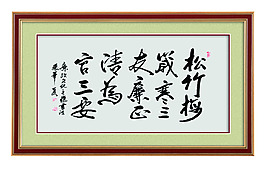 松竹梅
歲寒三
友廉正
清為
官三要